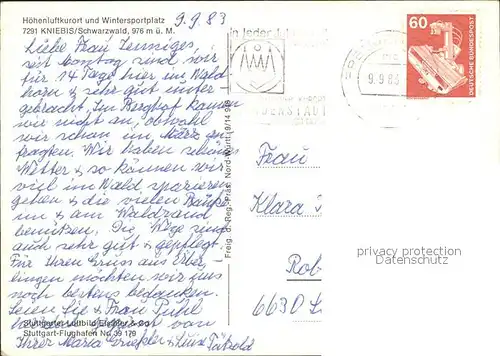 Höhenluftkurort und Wintersportplatz
7291 KNIEBIS/Schwarzwald, 976 m ü. M.
9.9.83
Liebe Frau Jenniges,
seit Montag sind wir
für 14 Tage hier im Wald
horn & sehr gut unter-
gebracht. Im Berghof kamen
wir nicht an, obwohl
wir schon im März an-
fragten. Wir haben schönes
Wetter & so können wir
viel im Wald spazieren
gehen & die vielen Bänke
im & am Waldrand
benützen. Die Wege sind
auch sehr gut & gepflegt.
Für Ihren Gruss aus Über-
lingen möchten wir uns
noch bestens bedanken.
Seien Sie & Frau Puhl
gegrüsst von
Ihrer Maria & Luise
Stuttgarter Luftbild Elsäßer & Co.
Stuttgart-Flughafen No 39 170
Freig. d. Reg. Präs. Nord-Württ. 9/14 9
in jeder
9.9.83
60
DEUTSCHE BUNDESPOST
Frau
Klara
Rob
6630
privacy protection
Datenschutz